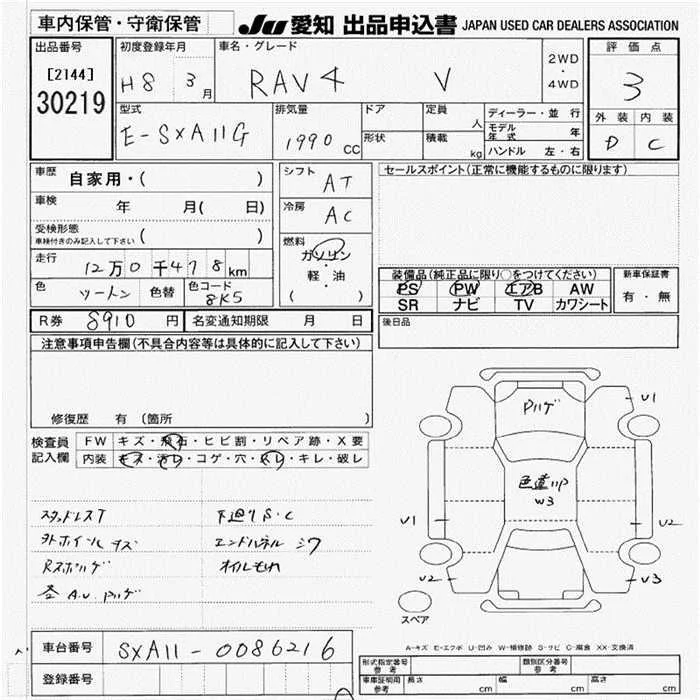 車内保管・守衛保管
JU 愛知 出品申込書 JAPAN USED CAR DEALERS ASSOCIATION
出品番号
[2144]
30219
初度登録年月
H8 3月
車名・グレード
RAV4 V
2WD
・
4WD
評価点
3
外装 内装
D C
型式
E-SXA11G
排気量
1990cc
ドア
形状
定員 人
積載 kg
ディーラー・並行
モデル年式 年
ハンドル 左・右
車歴
自家用・( )
車検 年 月( 日)
受検形態
車検付きのみ記入して下さい ( )
走行
12万0千478km
色 ツートン 色替 色コード 8K5
シフト
AT
冷房
AC
燃料
ガソリン
・
軽・油
( )
セールスポイント(正常に機能するものに限ります)
装備品(純正品に限り○をつけてください)
PS PW エアB AW
SR ナビ TV カワシート
新車保証書
有・無
R券 8910円 名変通知期限 月 日
後日品
注意事項申告欄(不具合内容等は具体的に記入して下さい)
修復歴 有(箇所 )
検査員
記入欄
FW キズ・飛石・ヒビ割・リペア跡・X要
内装 キズ・汚レ・コゲ・穴・スレ・キレ・破レ
スタッドレスT
外ホイールキズ
下廻りS・C
オイルもれ
U1
U1
U2
U2
U3
W3
スペア
A-キズ E-エクボ U-凹み W-補修跡 S-サビ C-腐食 XX-交換済
車台番号 SXA11-0086216
登録番号
形式指定番号
参考
類別区分番号
参考
車庫証明用
参考
長さ cm
幅 cm
高さ cm